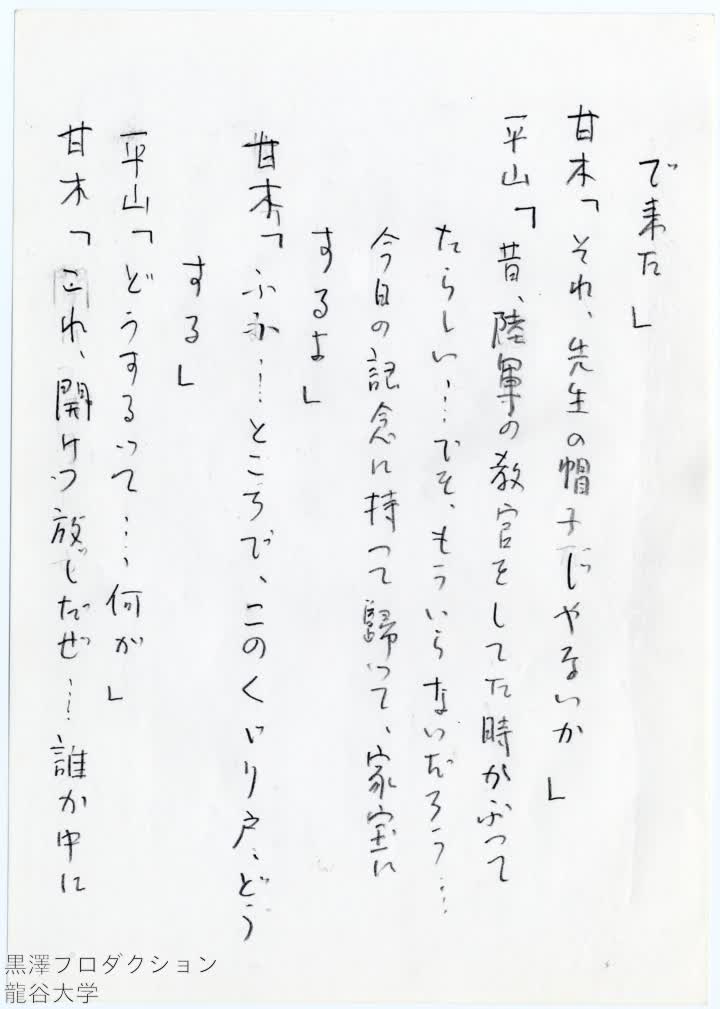 で来た」
甘木「それ、先生の帽子じやないか」
平山「昔、陸軍の教官をしてた時かぶつて
たらしい…でも、もういらないだろう…
今日の記念に持つて歸つて、家宝に
するよ」
甘木「ふふ…ところで、このくゞり戸、どう
する」
平山「どうするつて…何が」
甘木「これ、開けつ放しだぜ…誰か中に
黒澤プロダクション
龍谷大学